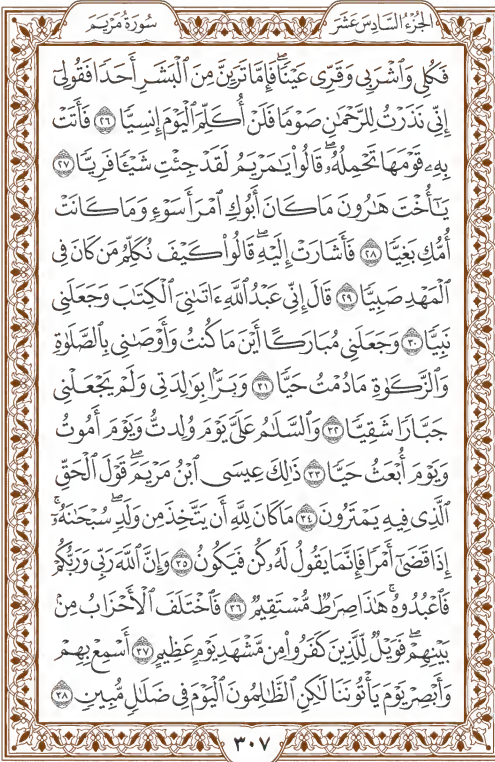 سُورَةُ مَرْيَمَ الجُزْءُ السَّادِسَ عَشَرَ
فَكُلِى وَٱشْرَبِى وَقَرِّى عَيْنًاۖ فَإِمَّا تَرَيِنَّ مِنَ ٱلْبَشَرِ أَحَدًا فَقُولِىٓ
إِنِّى نَذَرْتُ لِلرَّحْمَٰنِ صَوْمًا فَلَنْ أُكَلِّمَ ٱلْيَوْمَ إِنسِيًّا ٢٦ فَأَتَتْ
بِهِۦ قَوْمَهَا تَحْمِلُهُۥۖ قَالُوا۟ يَٰمَرْيَمُ لَقَدْ جِئْتِ شَيْـًٔا فَرِيًّا ٢٧
يَٰٓأُخْتَ هَٰرُونَ مَا كَانَ أَبُوكِ ٱمْرَأَ سَوْءٍ وَمَا كَانَتْ
أُمُّكِ بَغِيًّا ٢٨ فَأَشَارَتْ إِلَيْهِۖ قَالُوا۟ كَيْفَ نُكَلِّمُ مَن كَانَ فِى
ٱلْمَهْدِ صَبِيًّا ٢٩ قَالَ إِنِّى عَبْدُ ٱللَّهِ ءَاتَىٰنِىَ ٱلْكِتَٰبَ وَجَعَلَنِى
نَبِيًّا ٣٠ وَجَعَلَنِى مُبَارَكًا أَيْنَ مَا كُنتُ وَأَوْصَٰنِى بِٱلصَّلَوٰةِ
وَٱلزَّكَوٰةِ مَا دُمْتُ حَيًّا ٣١ وَبَرًّۢا بِوَٰلِدَتِى وَلَمْ يَجْعَلْنِى
جَبَّارًا شَقِيًّا ٣٢ وَٱلسَّلَٰمُ عَلَىَّ يَوْمَ وُلِدتُّ وَيَوْمَ أَمُوتُ
وَيَوْمَ أُبْعَثُ حَيًّا ٣٣ ذَٰلِكَ عِيسَى ٱبْنُ مَرْيَمَۖ قَوْلَ ٱلْحَقِّ
ٱلَّذِى فِيهِ يَمْتَرُونَ ٣٤ مَا كَانَ لِلَّهِ أَن يَتَّخِذَ مِن وَلَدٍۖ سُبْحَٰنَهُۥٓۚ
إِذَا قَضَىٰٓ أَمْرًا فَإِنَّمَا يَقُولُ لَهُۥ كُن فَيَكُونُ ٣٥ وَإِنَّ ٱللَّهَ رَبِّى وَرَبُّكُمْ
فَٱعْبُدُوهُۚ هَٰذَا صِرَٰطٌ مُّسْتَقِيمٌ ٣٦ فَٱخْتَلَفَ ٱلْأَحْزَابُ مِنۢ
بَيْنِهِمْۖ فَوَيْلٌ لِّلَّذِينَ كَفَرُوا۟ مِن مَّشْهَدِ يَوْمٍ عَظِيمٍ ٣٧ أَسْمِعْ بِهِمْ
وَأَبْصِرْ يَوْمَ يَأْتُونَنَا لَٰكِنِ ٱلظَّٰلِمُونَ ٱلْيَوْمَ فِى ضَلَٰلٍ مُّبِينٍ ٣٨
٣٠٧